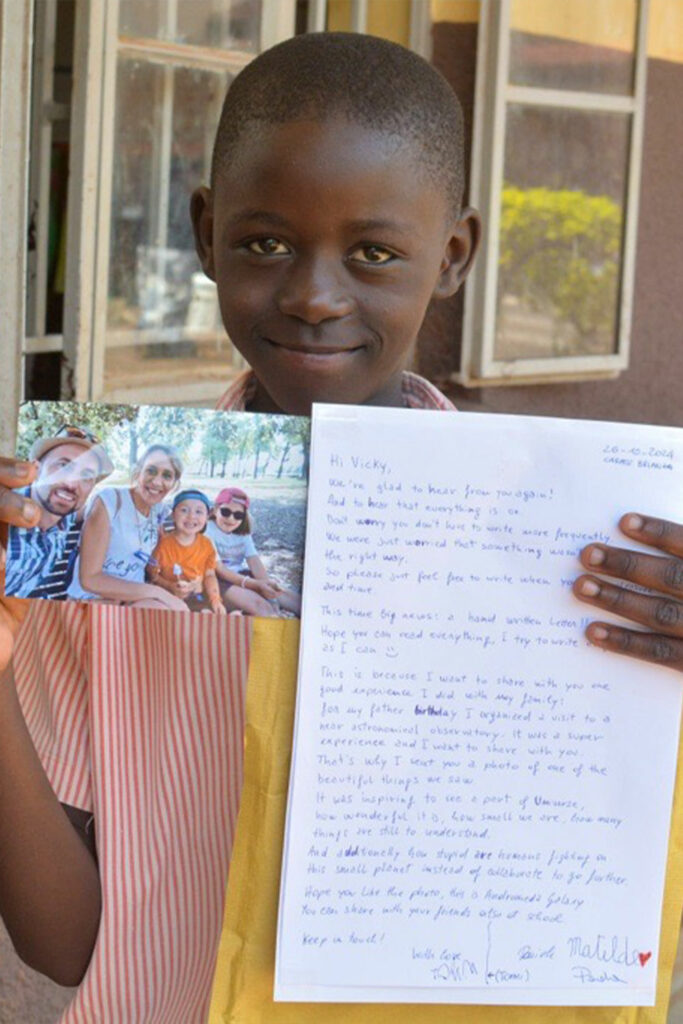 26-10-2024
CARATE BRIANZA
Hi Vicky,
We're glad to hear from you again!
And to hear that everything is ok.
Don't worry you don't have to write more frequently.
We were just worried that something wasn't
the right way.
So please just feel free to write when you
and time
This time big news: a hand written letter!!
Hope you can read everything, I try to write
as I can
This is because I want to share with you one
good experience I did with my family:
for my father birthday I organized a visit to a
near astronomical observatory. It was a super
experience and I want to share with you.
That's why I sent you a photo of one of the
beautiful things we saw
It was inspiring to see a part of Universe,
how wonderful it is, how small we are, how many
things are still to understand.
And additionally how stupid are humans fighting on
this small planet instead of collaborate to go further.
Hope you like the photo, this is Andromeda Galaxy
You can share with your friends also at school
Keep in touch!
With love
Davide Matilde